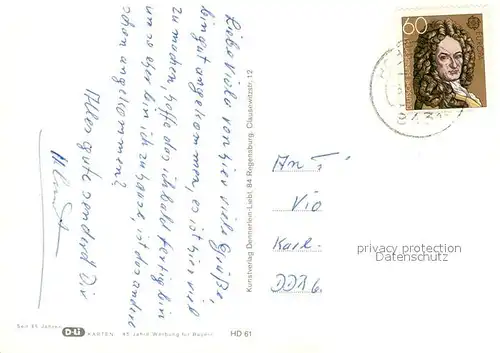 Liebe Viola von hier viele Grüße,
bin gut angekommen, es ist hier viel
zu machen, hoffe das ich bald fertig bin
um so eher bin ich zuhause ist das andere
schon angekommen?
Alles gute sendend Dir
Kunstverlag Dennerlein-Liebl, 84 Regensburg, Clausewitzstr. 12
60
EUROPA
An
Vio
Karl-
DDR 6.
privacy protection
Datenschutz
Seit 45 Jahren D-Li KARTEN: 45 Jahre Werbung für Bayern HD 61